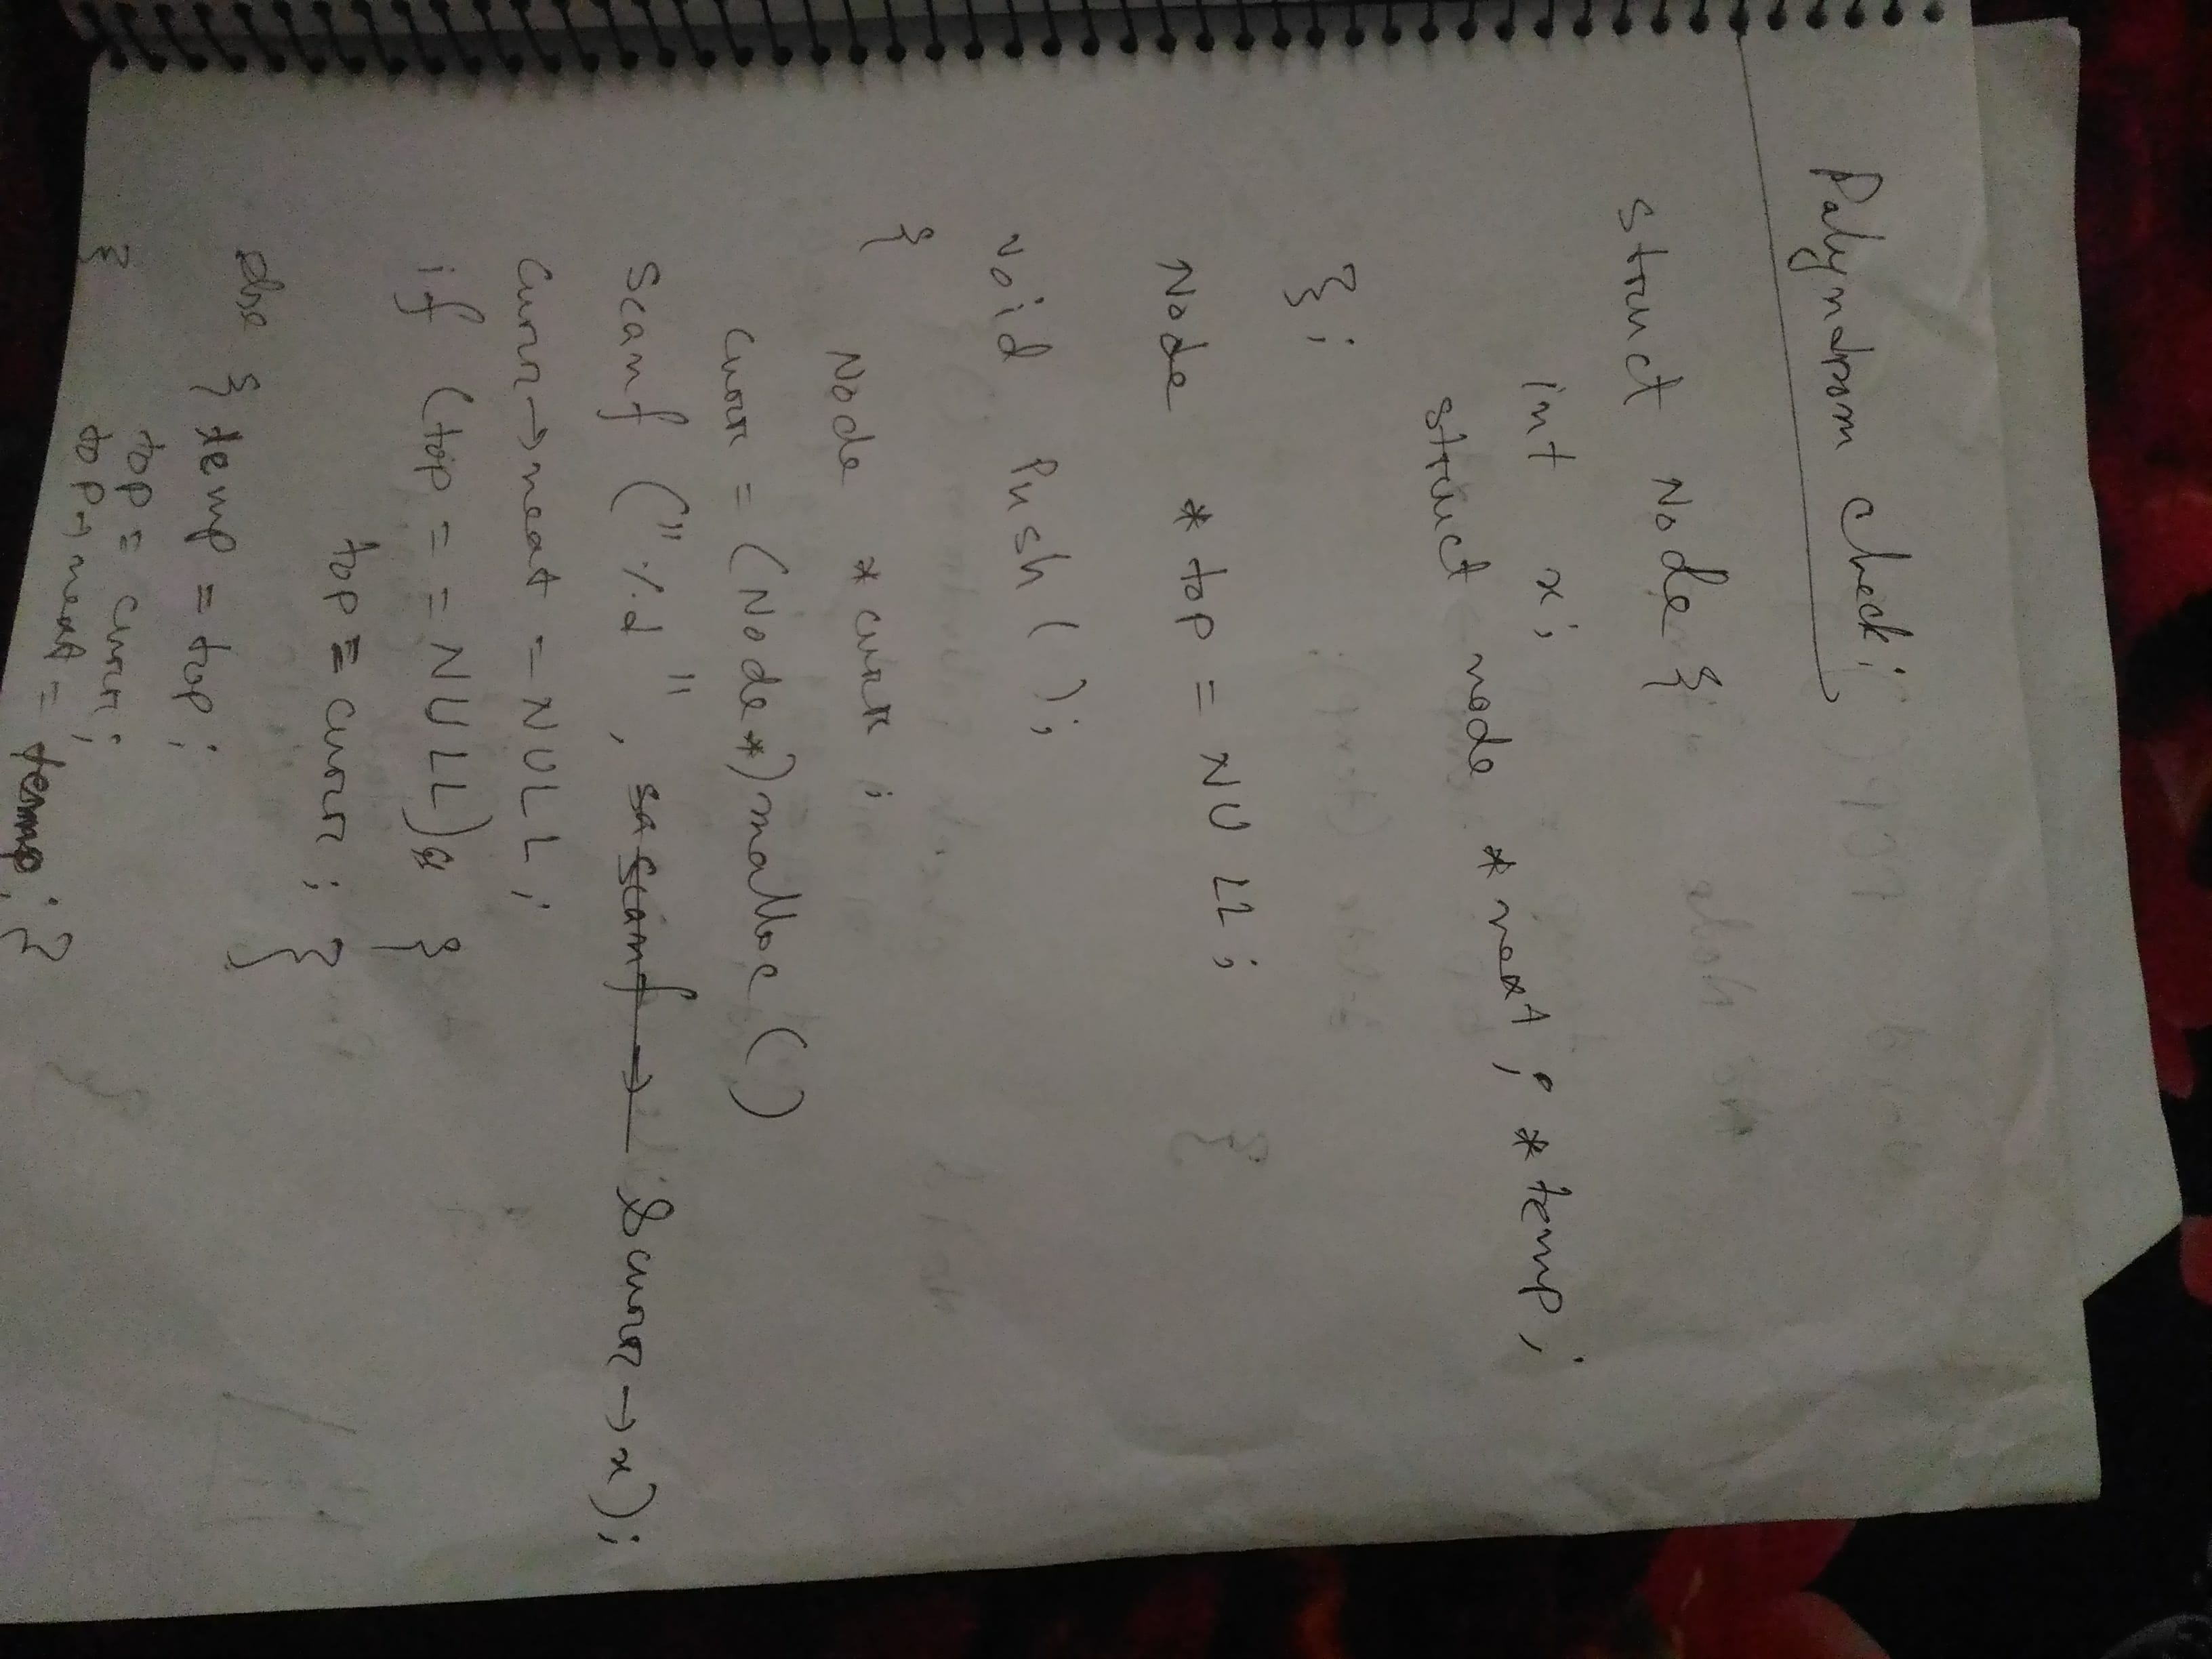 Palyndrom check:
struct Node {
int x;
struct node *next; *temp;
};
Node *top = NULL;
void Push();
{
Node *curr;
curr = (Node*)malloc()
scanf ("%d", &curr→x);
curr→next = NULL;
if (top == NULL) {
top = curr; }
else { temp = top;
top = curr;
} top→next = temp; }